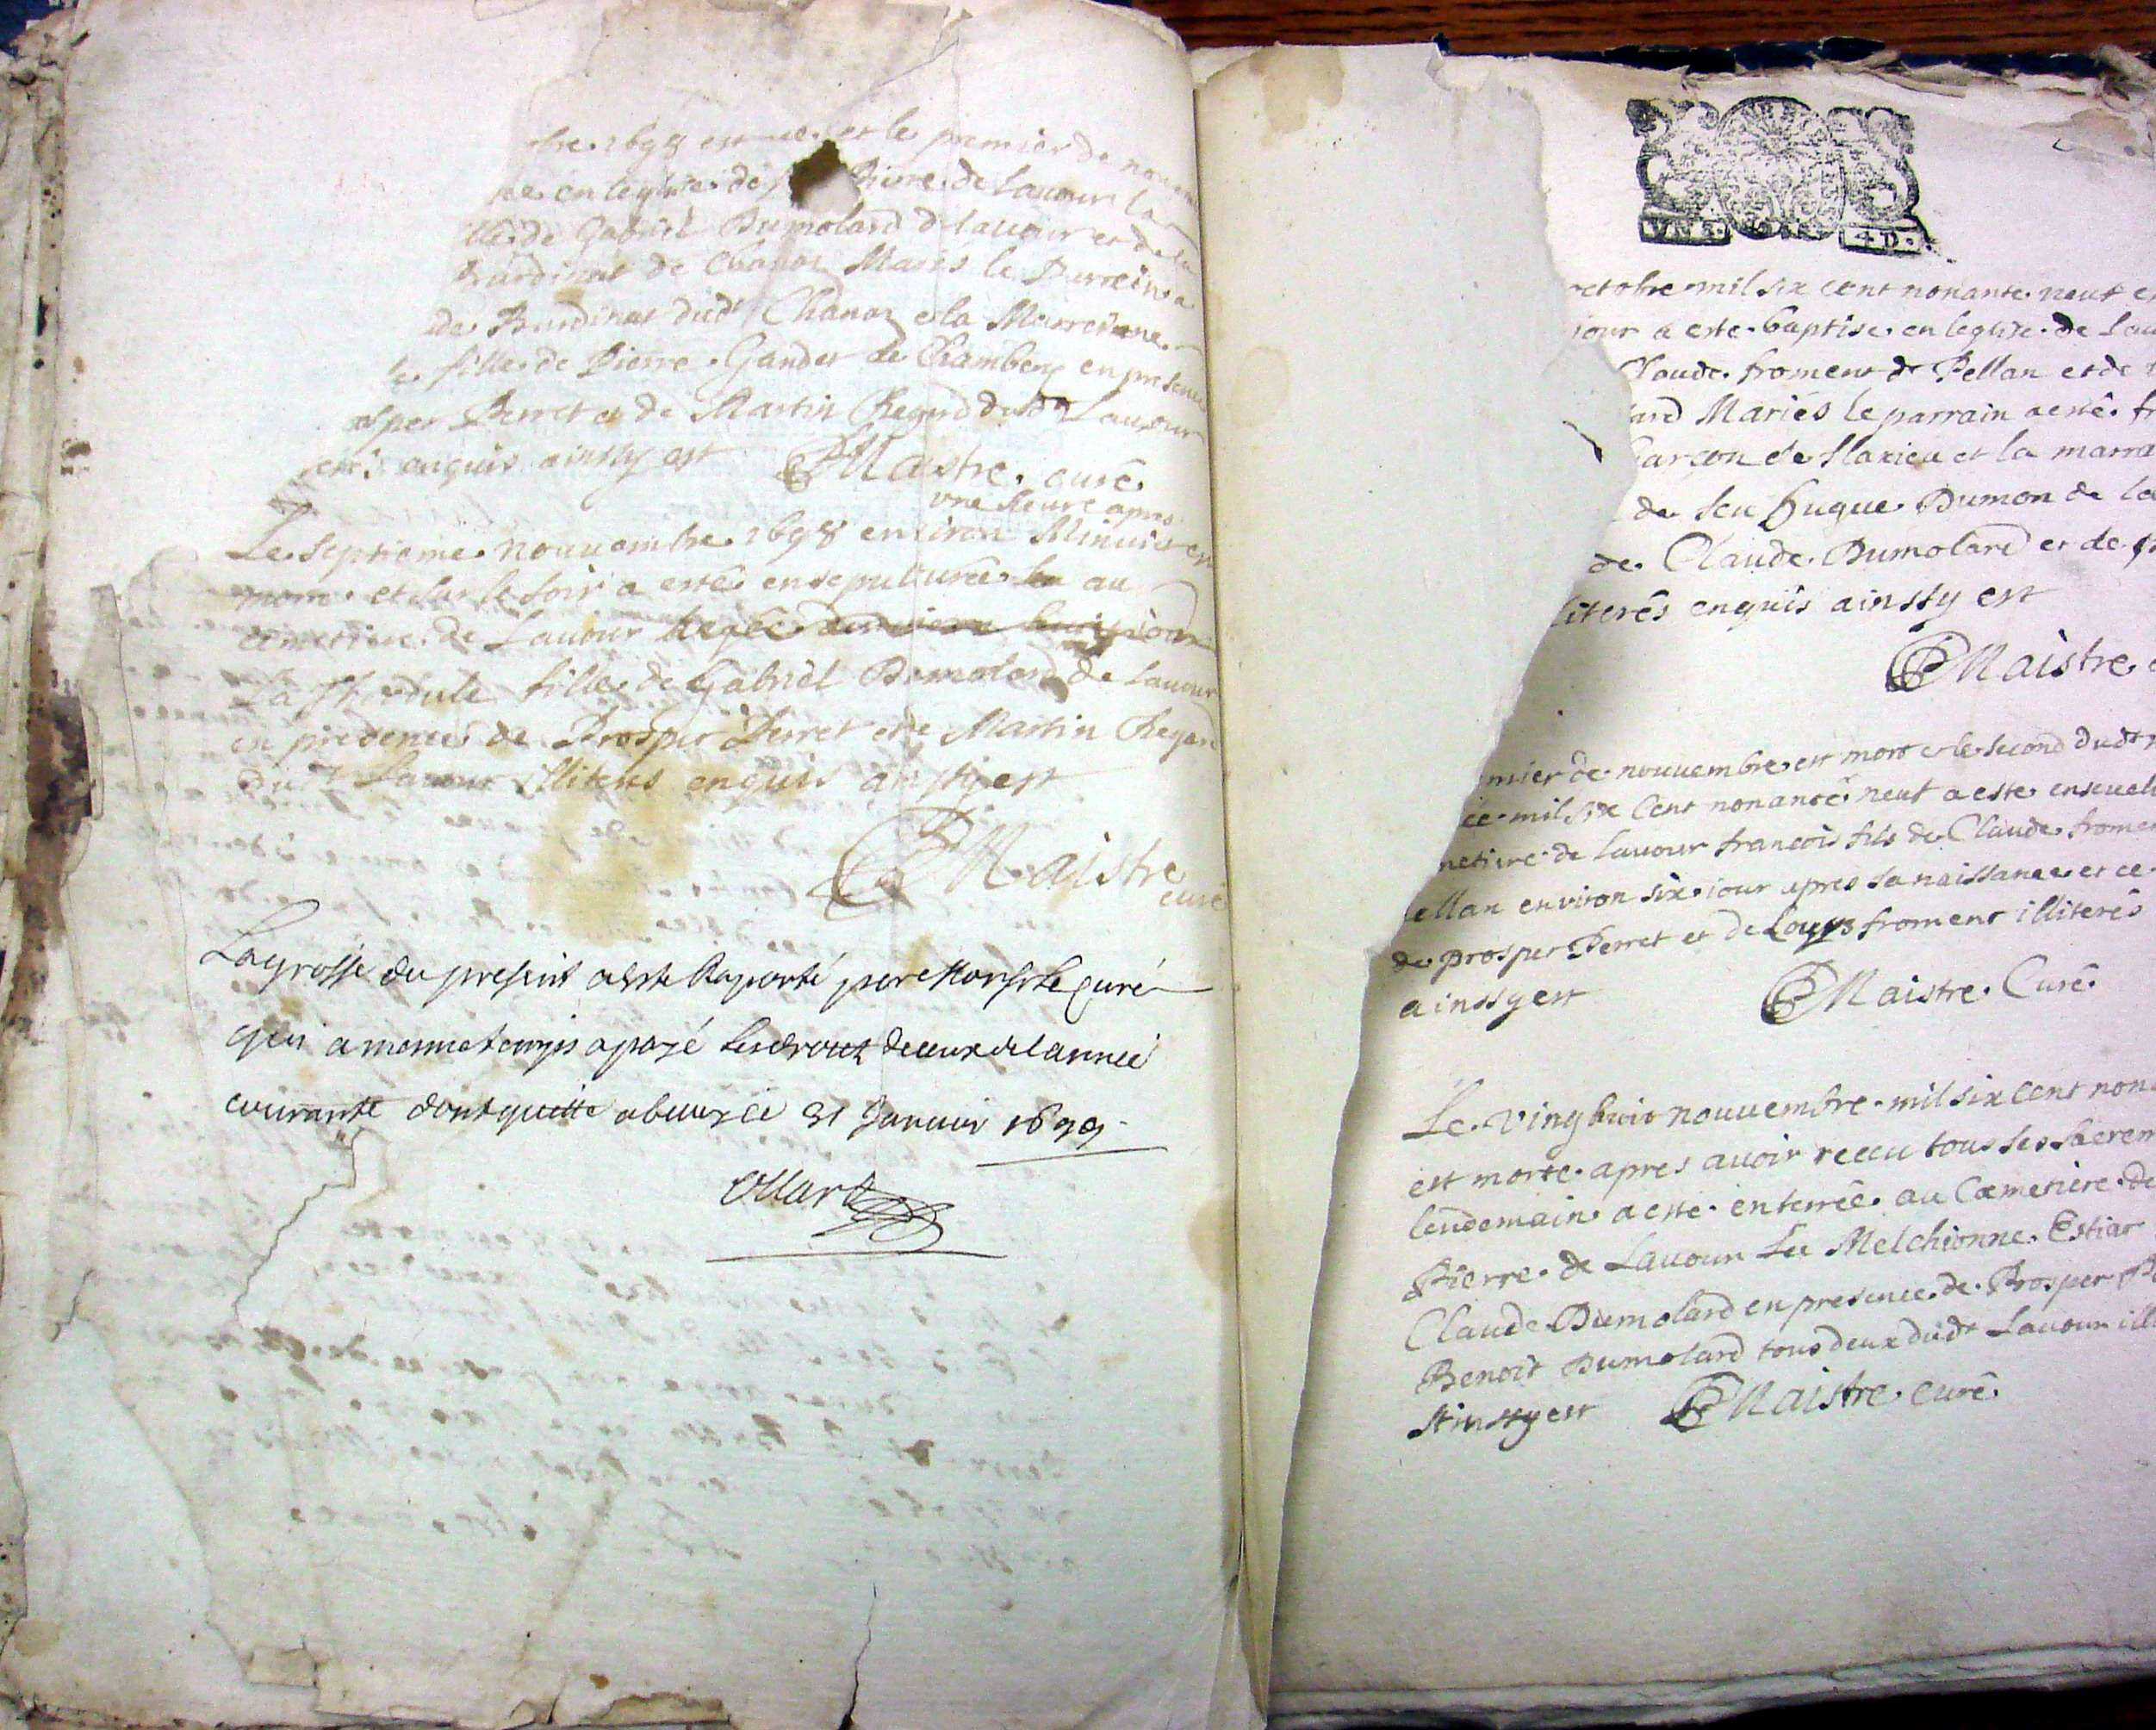 bre 1698 est née et le premier de nou
ée en leglise de Pierre de Lauour la
ille de Gabriel Dumolard d lauour et de la
Burdinat de Chanaz Mariés le Parrein a
de Burdinat dudt Chanaz et la Marreinne
fille de Pierre Gandet de Chambery en presence
osper Perret et de Martin Regard dudt Lauour
enquis ainsty est PMaistre curé
vne heure apres
Le septieme nouuembre 1698 environ Minuit
et sur le soir a esté ensepulturée au
cemetiere de Lauour
La Theodule fille de Gabriel Dumolard de Lauour
en presence de Prosper Perret et de Martin Regard
dudt Lauour illiterés enquis ainsty est
PMaistre
curé
La grosse du present a esté Raporté par Monsr le curé
qui a mesme temps a payé les droits de ceux de lannée
courante dont quitte a belley ce 31 Januier 1699
VN S. 4 D.
octobre mil six cent nonante neuf e
iour a este baptise en leglise de Lau
Claude froment de Pellan et de
ard Mariés le parrain a esté fr
Garcon de flaxieu et la marra
de feu huque Dumon de la
de Claude Dumolard et de
literés enquis ainssy est
PMaistre
mier de nouuembre est mort et le second dudt
ée mil six Cent nonante neuf a este enseueli
metiere de lauour francois fils de Claude frome
ellan environ six iour apres sa naissance et ce
de prosper Perret et de Louys froment illiterés
ainssy est PMaistre Curé
Le vinghuit nouuembre mil six cent non
est morte apres auoir receu tous ses sacrem
lendemain a esté enterrée au Cœmetiere de
Pierre de Lauour Melchionne Estiar
Claude Dumolard en presence de Prosper P
Benoit Dumolard tous deux dudt Lauour ill
Ainssy est PMaistre curé